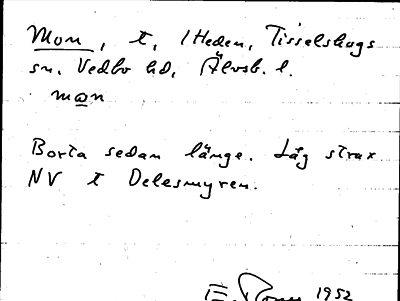 Mon, t, 1 Heden, Tisselskogs
sn. Vedbo hd, Älvsb. l.
mon
Borta sedan länge. Låg strax
NV t Delesmyren.
1952